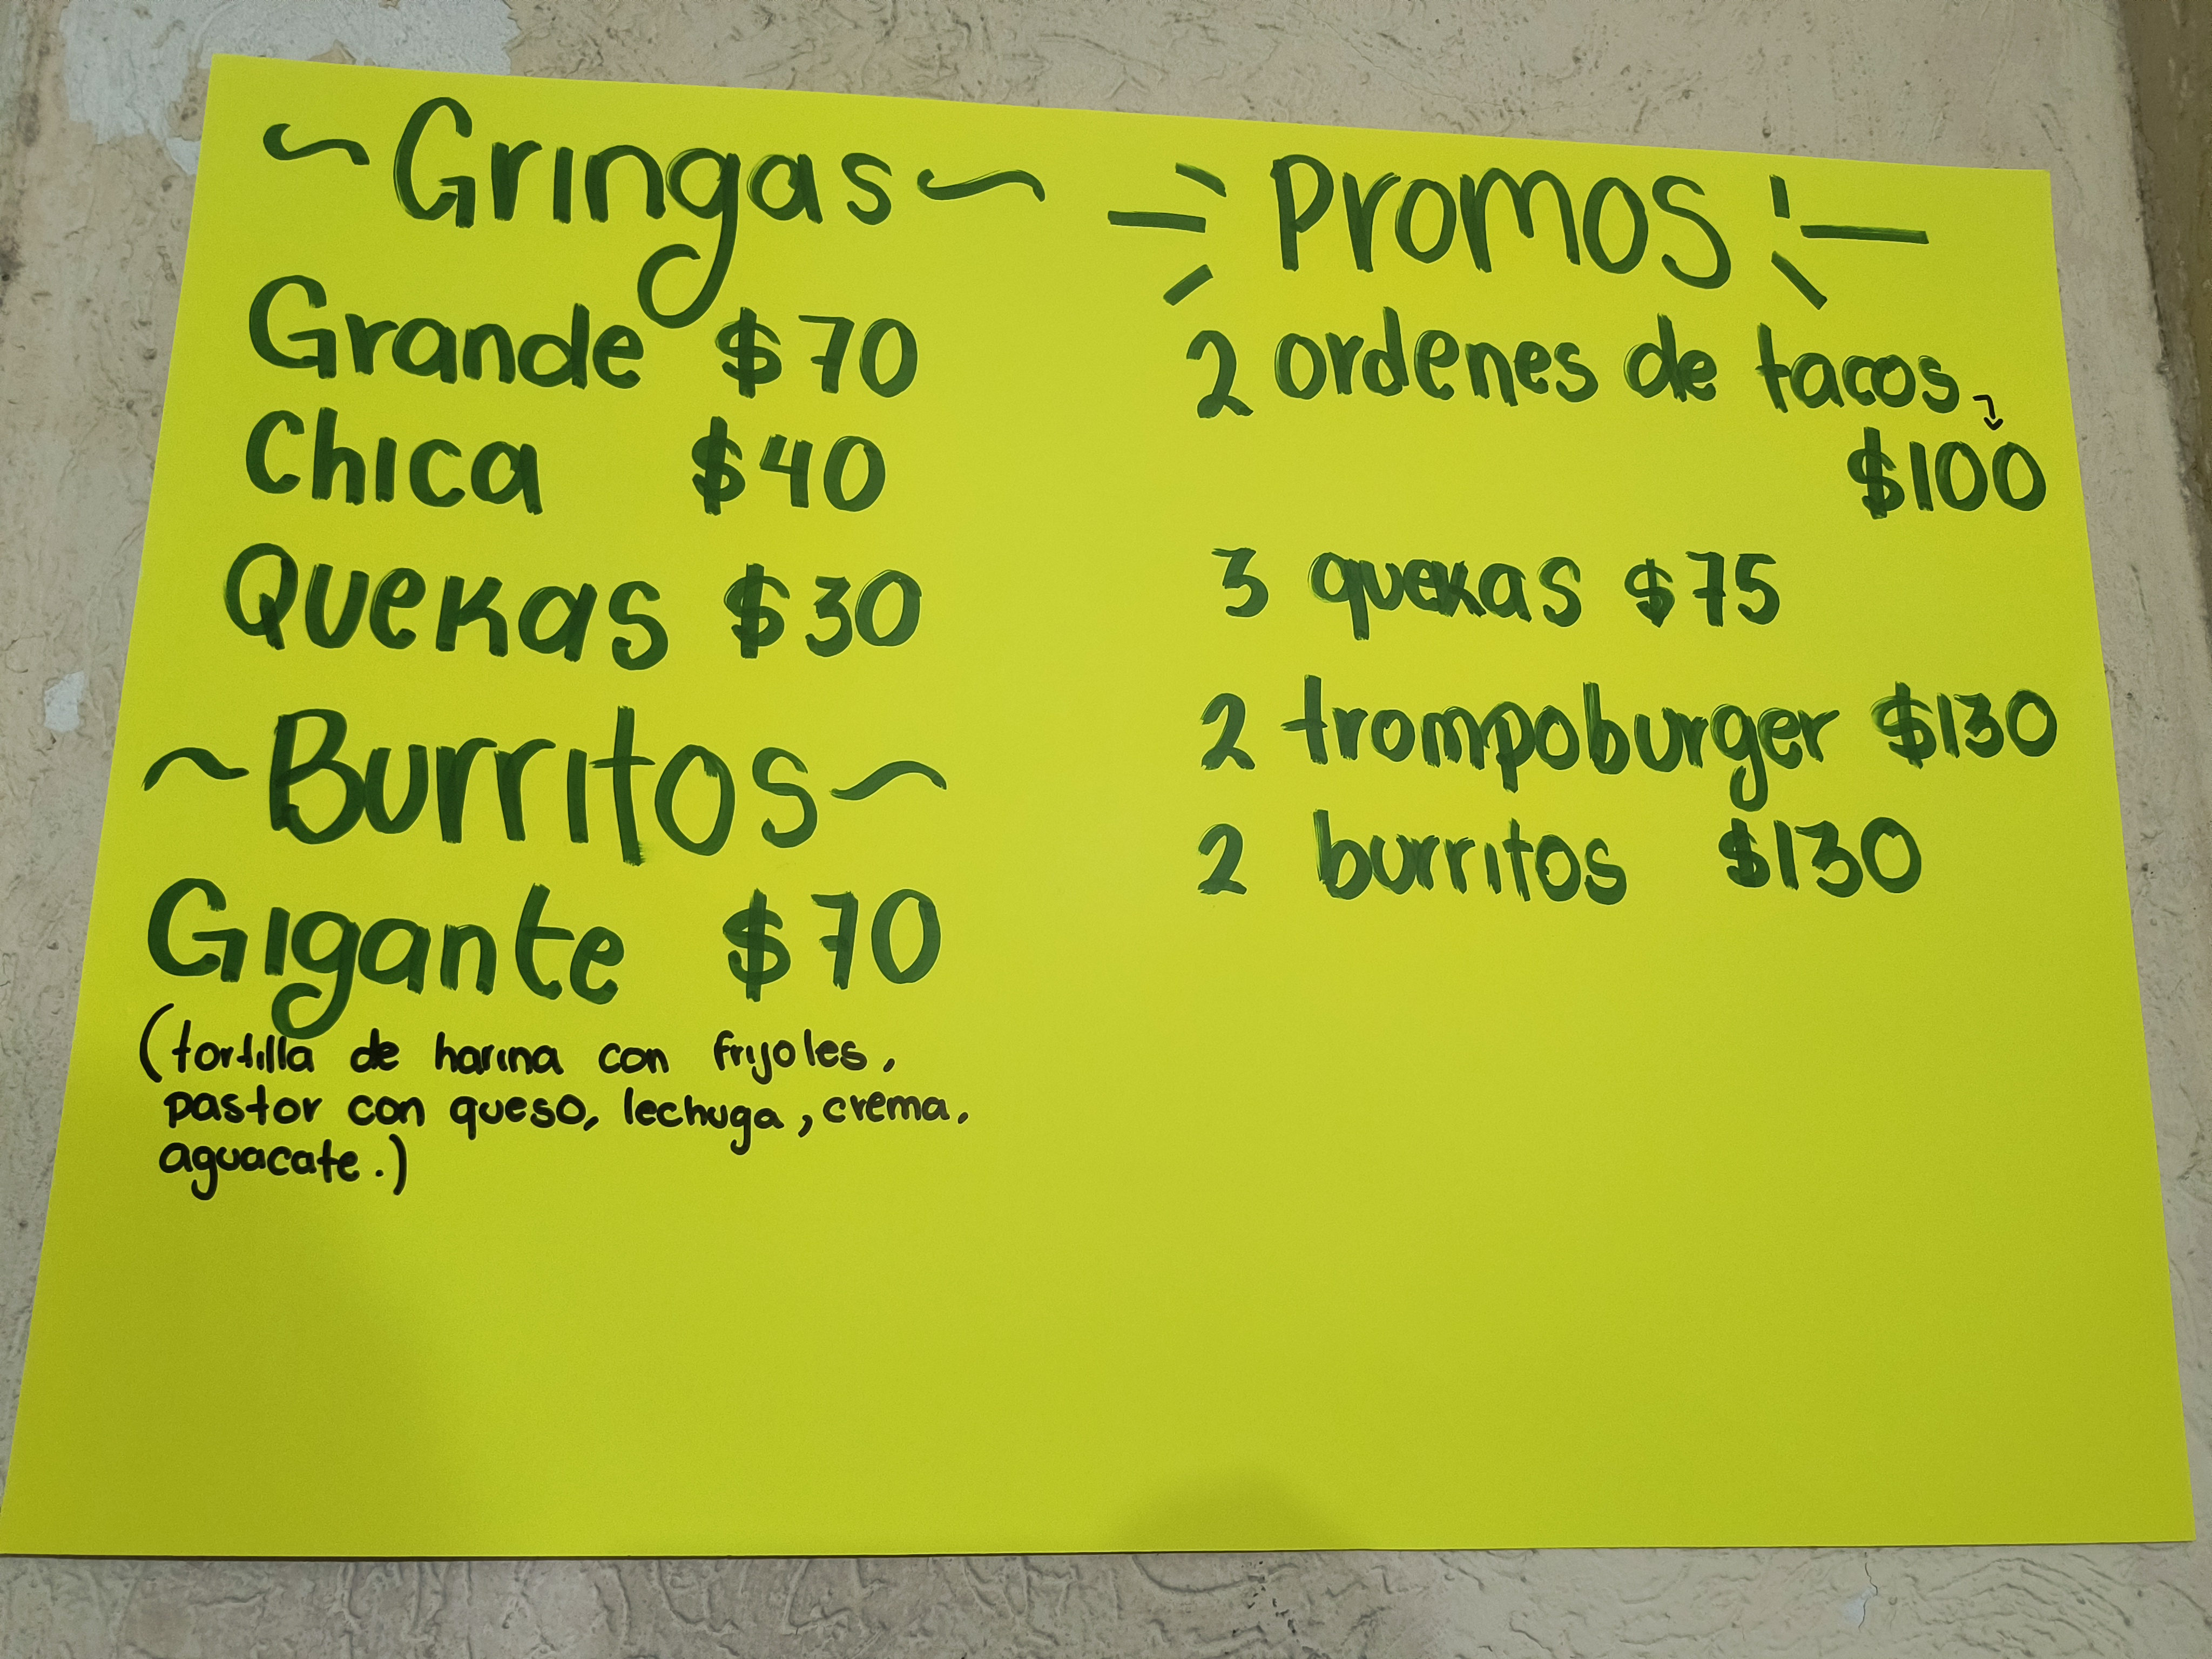 ~Gringas~
Grande $70
Chica $40
Quekas $30
~Burritos~
Gigante $70
(tortilla de harina con frijoles,
pastor con queso, lechuga, crema,
aguacate.)
Promos
2 ordenes de tacos
$100
3 quekas $75
2 trompoburger $130
2 burritos $130